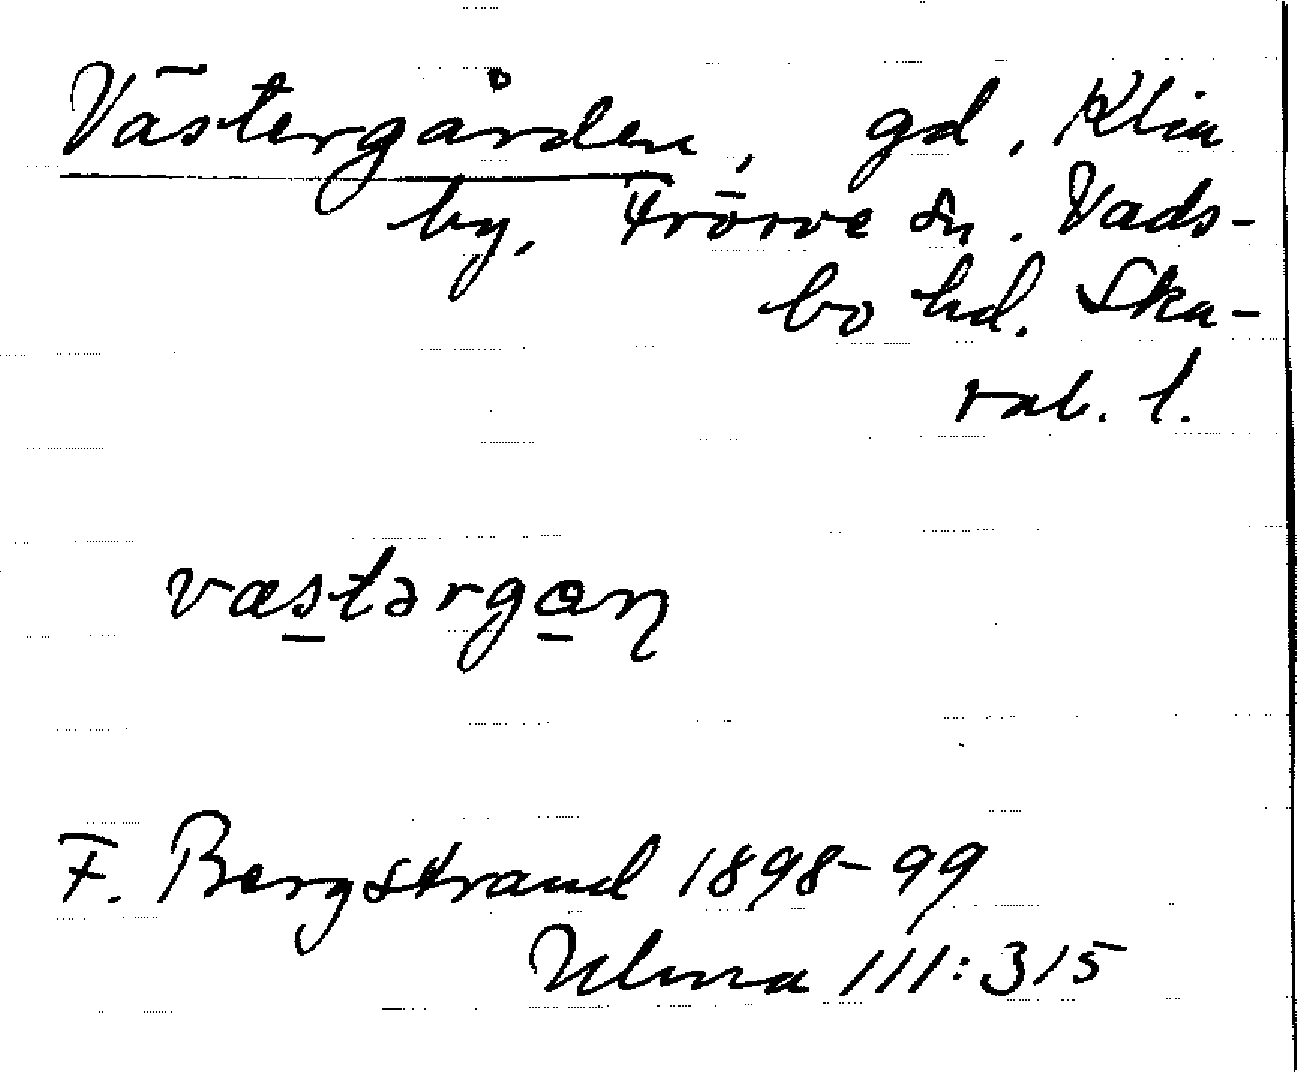 Västergården, gd, Klia
by, Frörve sn. Vads-
bo hd. Ska-
rab. l.
væstərgɑn
F. Bergstrand 1898-99
Ulma 111:315